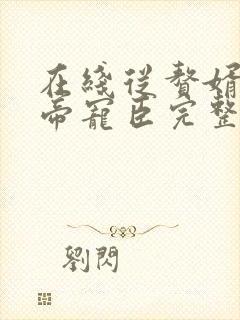 在綫從贅婿
帝寵臣完整
劉閃